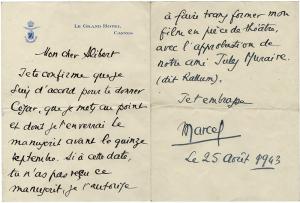 LE GRAND HOTEL
CANNES
Mon cher Hébert
Je te confirme que je
suis d'accord pour te donner
César, que je mets au point
et dont je t'enverrai le
manuscrit avant le quinze
septembre. Si à cette date,
tu n'as pas reçu ce
manuscrit, je t'autorise
à faire transformer mon
film en pièce de théâtre,
avec l'approbation de
notre ami Jules Muraire.
(dit Raimu).
Je t'embrasse
Marcel
Le 25 août 1943